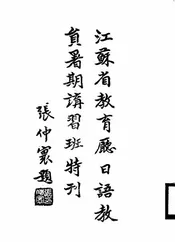 江蘇省教育廳日語教
員暑期講習班特刊
張仲寰題